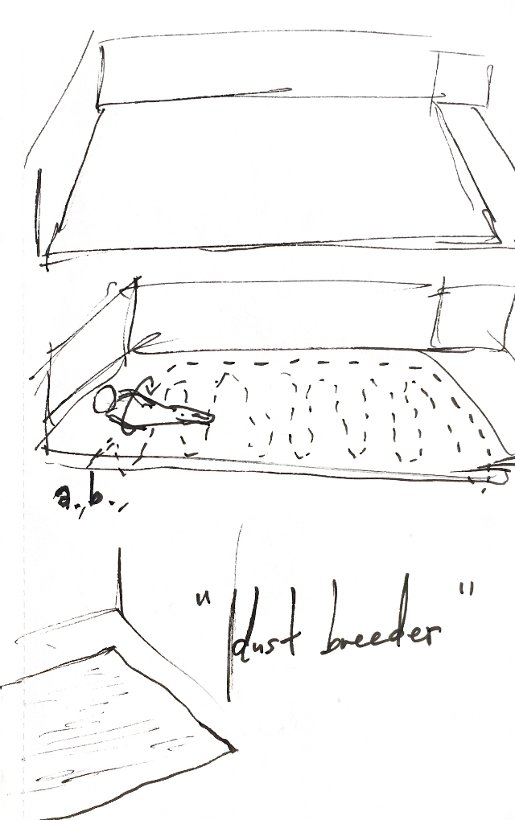 a., b.,
"dust breeder"